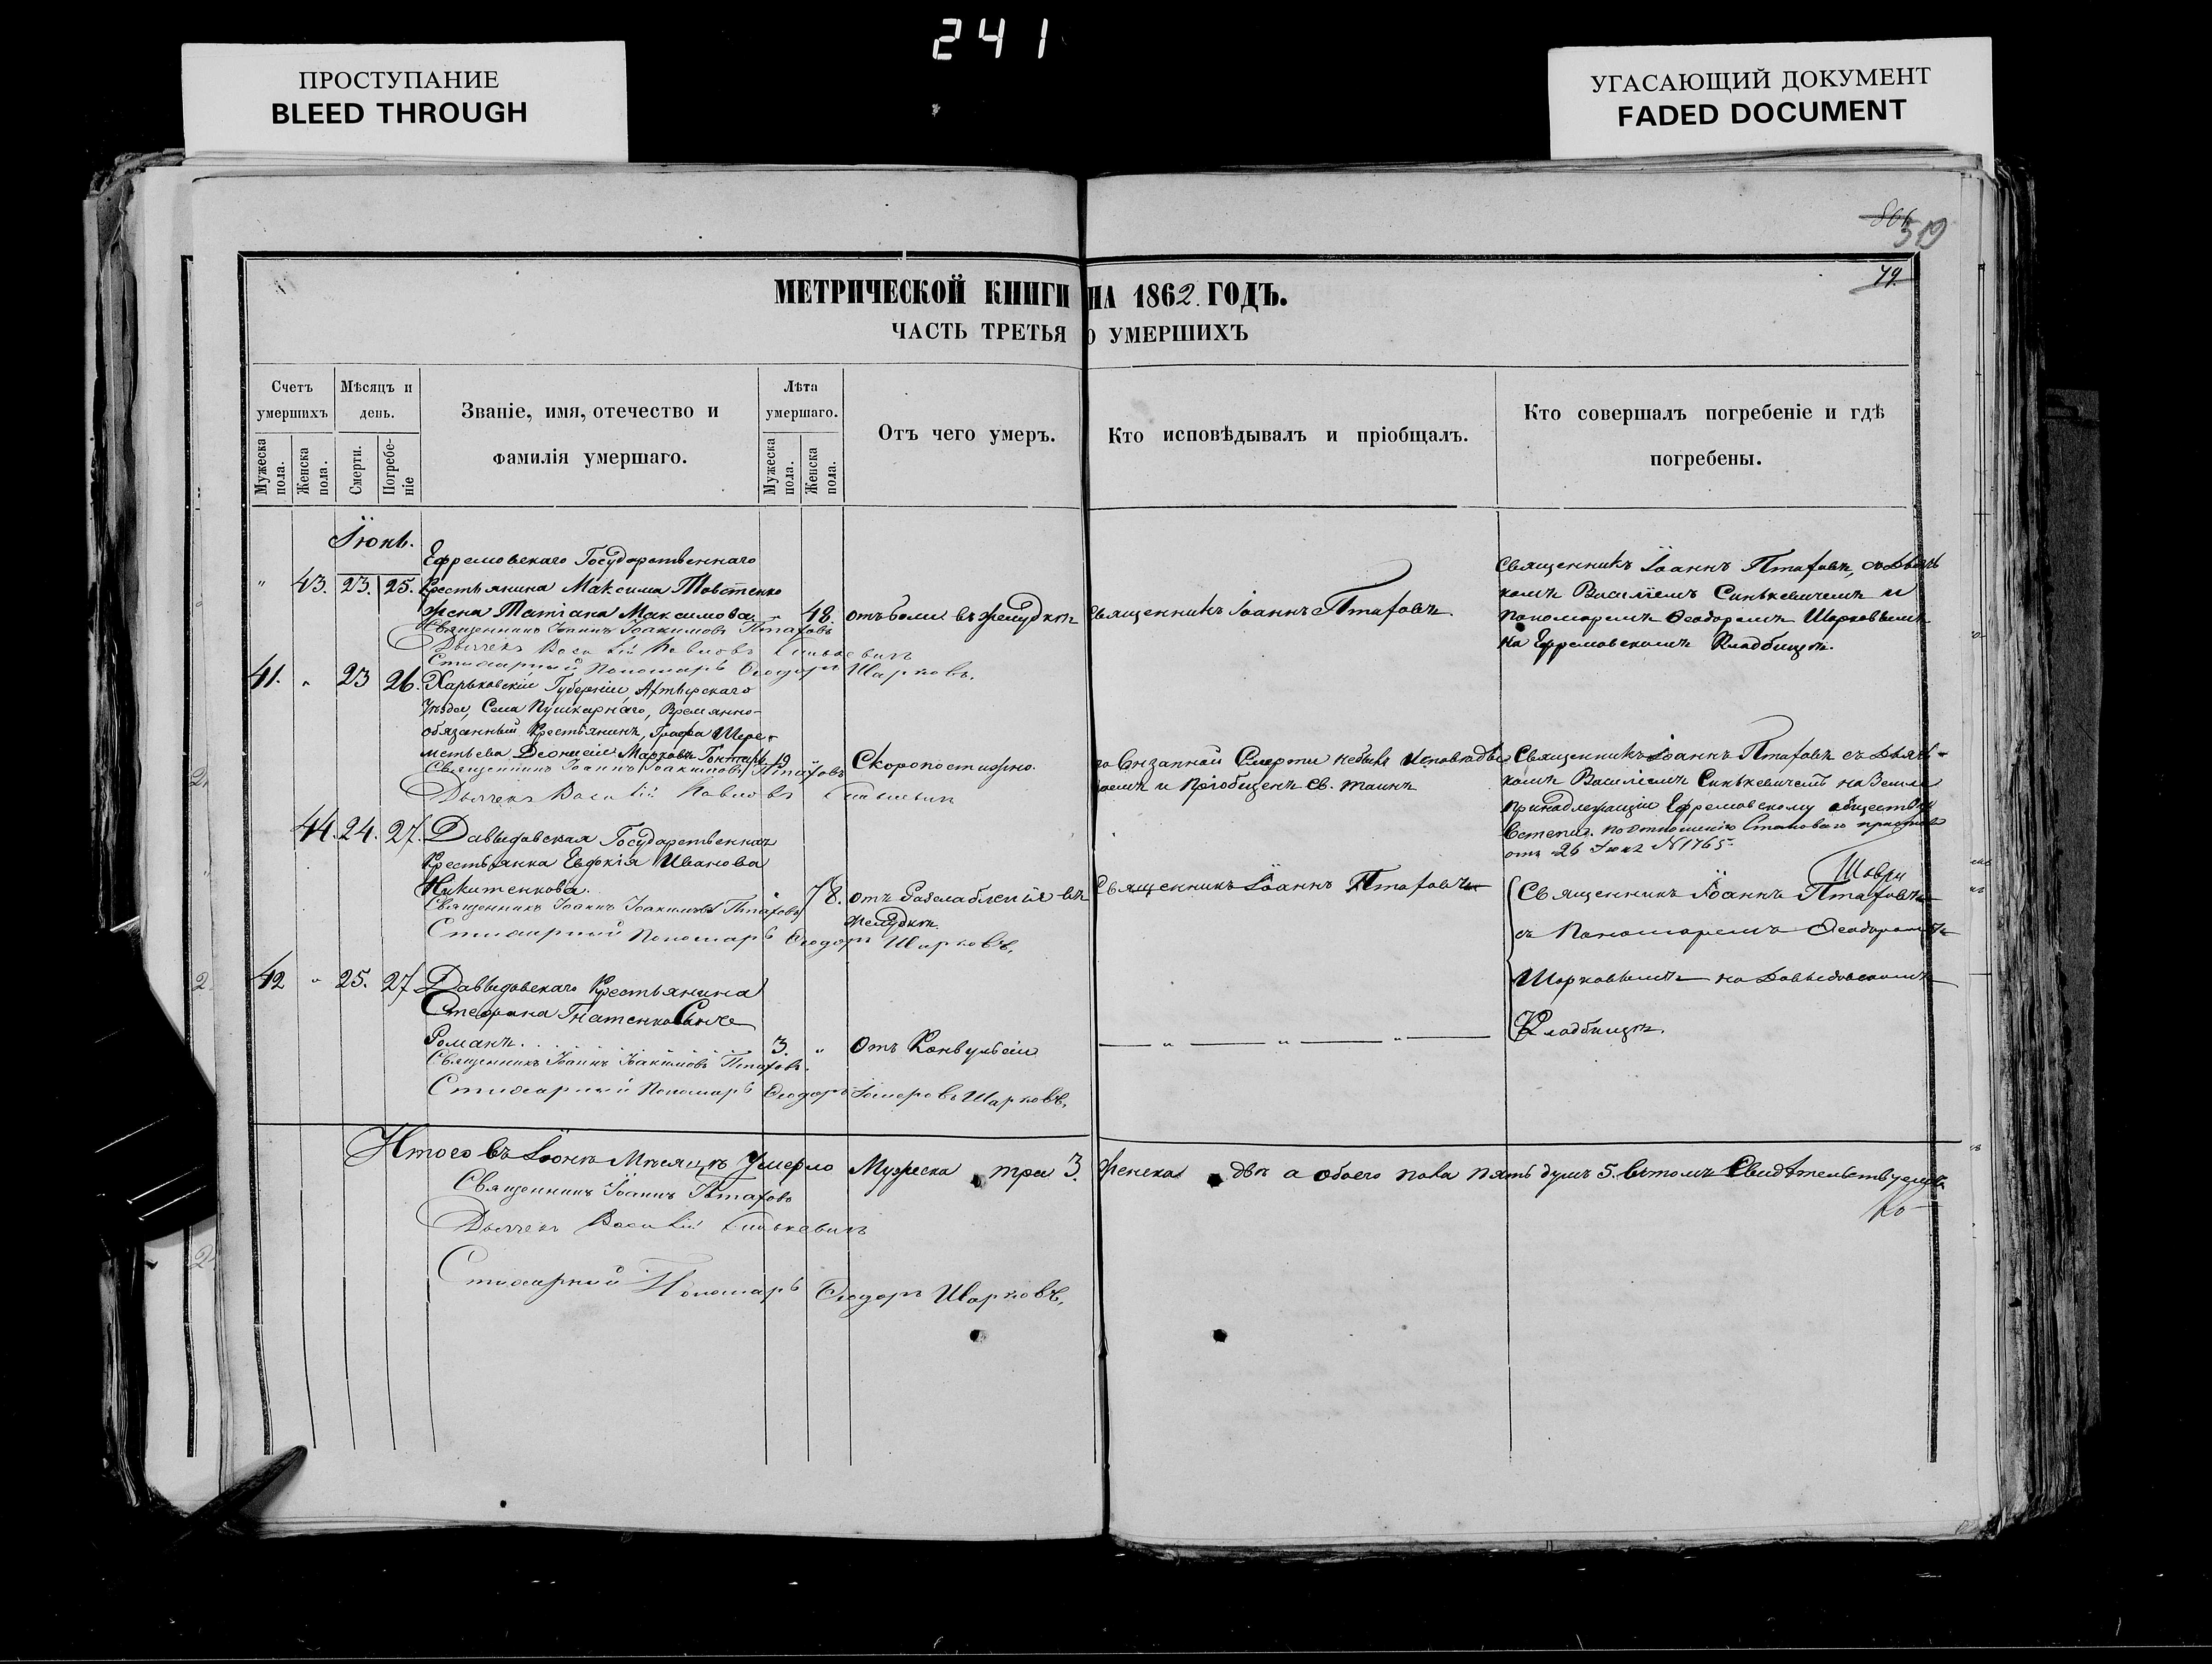 241
ПРОСТУПАНИЕ
BLEED THROUGH
УГАСАЮЩИЙ ДОКУМЕНТ
FADED DOCUMENT
519
79.
МЕТРИЧЕСКОЙ КНИГИ НА 1862 ГОДЪ.
ЧАСТЬ ТРЕТЬЯ О УМЕРШИХЪ
Счетъ умершихъ
Мужеска пола.
Женска пола.
Мѣсяцъ и день.
Смерти.
Погребеніе
Званіе, имя, отечество и
фамилія умершаго.
Лѣта умершаго.
Мужеска пола.
Женска пола.
Отъ чего умеръ.
Кто исповѣдывалъ и пріобщалъ.
Кто совершалъ погребеніе и гдѣ
погребены.
Їюнь.
" 43. 23. 25.
Ефремовскаго Государственнаго
Крестьянина Максима Товстенко
жена Татіана Максимова
48. отъ боли въ желудкѣ
Священникъ Іоаннъ Птаховъ.
Священникъ Іоаннъ Птаховъ, съ Дьяч
комъ Василіемъ Синькевичемъ и
пономаремъ Ѳеодоромъ Шарковымъ
на Ефремовскомъ Кладбищѣ.
Священникъ Іоаннъ Іоакимовъ Птаховъ
Дьячекъ Василій Павловъ Синькевичъ
Стихарный Пономарь Ѳеодоръ Шарковъ.
41. " 23 26.
Харьковскій Губерніи, Ахтырскаго
Уѣзда, Села Пушкарнаго, Временно-
обязанный Крестьянинъ, Графа Шере-
метьева Деонисій Марковъ
19 "
Скоропостижно.
по внезапной Смерти небылъ исповѣды
емъ и пріобщенъ Св. таинъ
Священникъ Іоаннъ Птаховъ съ Дьяч-
комъ Василіемъ Синькевичемъ на Земле
принадлежащіи Ефремовскому обществу
встепи. по отношенію Становаго пристава
отъ 26 Іюня №1765.
Священникъ Іоаннъ Іоакимовъ Птаховъ
Дьячекъ Василій Павловъ Синькевичъ
44. 24. 27.
Давыдовская Государственная
Крестьянка Евдокія Иванова
Никитенкова.
" 78. отъ Разслабленія въ
желудкѣ.
Священникъ Іоаннъ Птаховъ
Священникъ Іоаннъ Птаховъ
съ Пономаремъ Ѳеодоромъ
Шарковымъ на Давыдовскомъ
Кладбищѣ.
Священникъ Іоаннъ Іоакимовъ Птаховъ
Стихарный Пономарь Ѳеодоръ Шарковъ.
42 " 25. 27
Давыдовскаго Крестьянина
Стефана Гнатенка Сынъ
Романъ.
3. "
Отъ Конвульсіи
Священникъ Іоаннъ Іоакимовъ Птаховъ.
Стихарный Пономарь Ѳеодоръ Шарковъ.
Итого въ Іюнѣ Мѣсяцѣ Умерло Мужеска три 3. Женска двѣ а обоего пола пять душъ 5. вътомъ Свидѣтельствуемъ
Священникъ Іоаннъ Птаховъ
Дьячекъ Василій Синькевичъ
Стихарный Пономарь Ѳеодоръ Шарковъ.